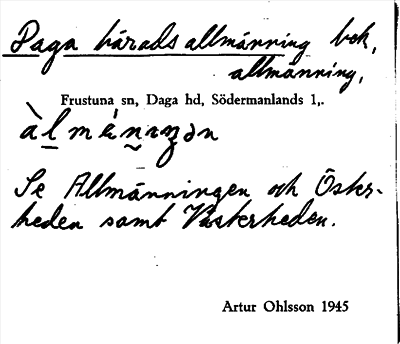 Daga härads allmänning bek,
allmänning,
Frustuna sn, Daga hd, Södermanlands l,.
àlmánɩŋən
Se Allmänningen och Öster-
heden samt Västerheden.
Artur Ohlsson 1945